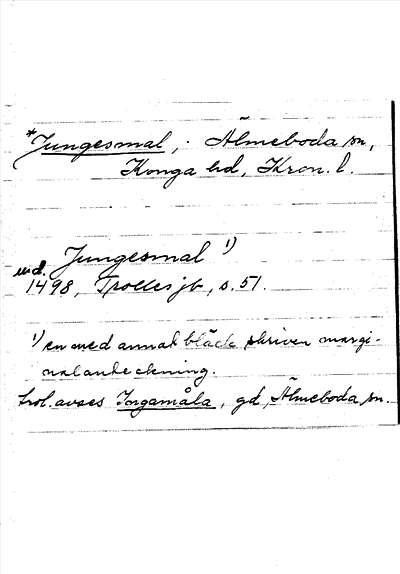 *Jungesmal, Älmeboda sn,
Konga hd, Kron. l.
Jungesmal 1)
1498, Trolles jb, s. 51.
1) en med annat bläck skriven margi-
nalanteckning.
trol. avses Ingamåla, gd, Älmeboda sn.